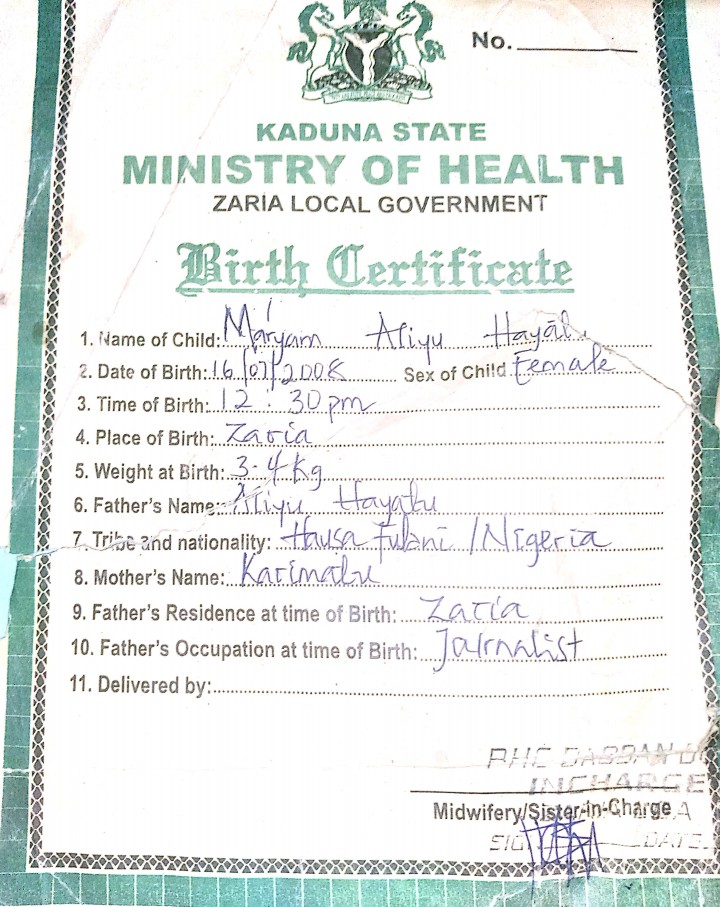 No.
KADUNA STATE
MINISTRY OF HEALTH
ZARIA LOCAL GOVERNMENT
Birth Certificate
1. Name of Child: Maryam Aliyu
2. Date of Birth: 16/07/2008 Sex of Child Female
3. Time of Birth: 12:30pm
4. Place of Birth: Zaria
5. Weight at Birth: 3-4kg
6. Father's Name: Aliyu Hayatu
7. Tribe and nationality: Hausa Fulani / Nigeria
8. Mother's Name: Karimatu
9. Father's Residence at time of Birth: Zaria
10. Father's Occupation at time of Birth: Jalrnalist
11. Delivered by:
PHC
INCHARGE
Midwifery/Sister-in-Charge
DATE